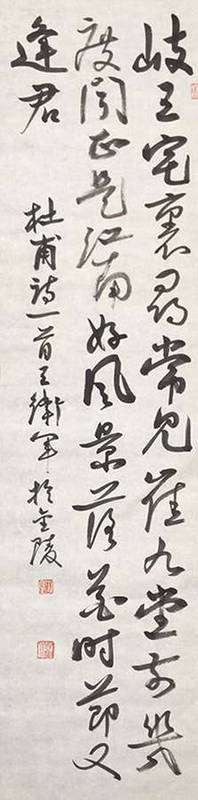 岐王宅裏尋常見崔九堂前幾
度聞正是江南好風景落花時節又
逢君
杜甫詩一首王衛軍於金陵